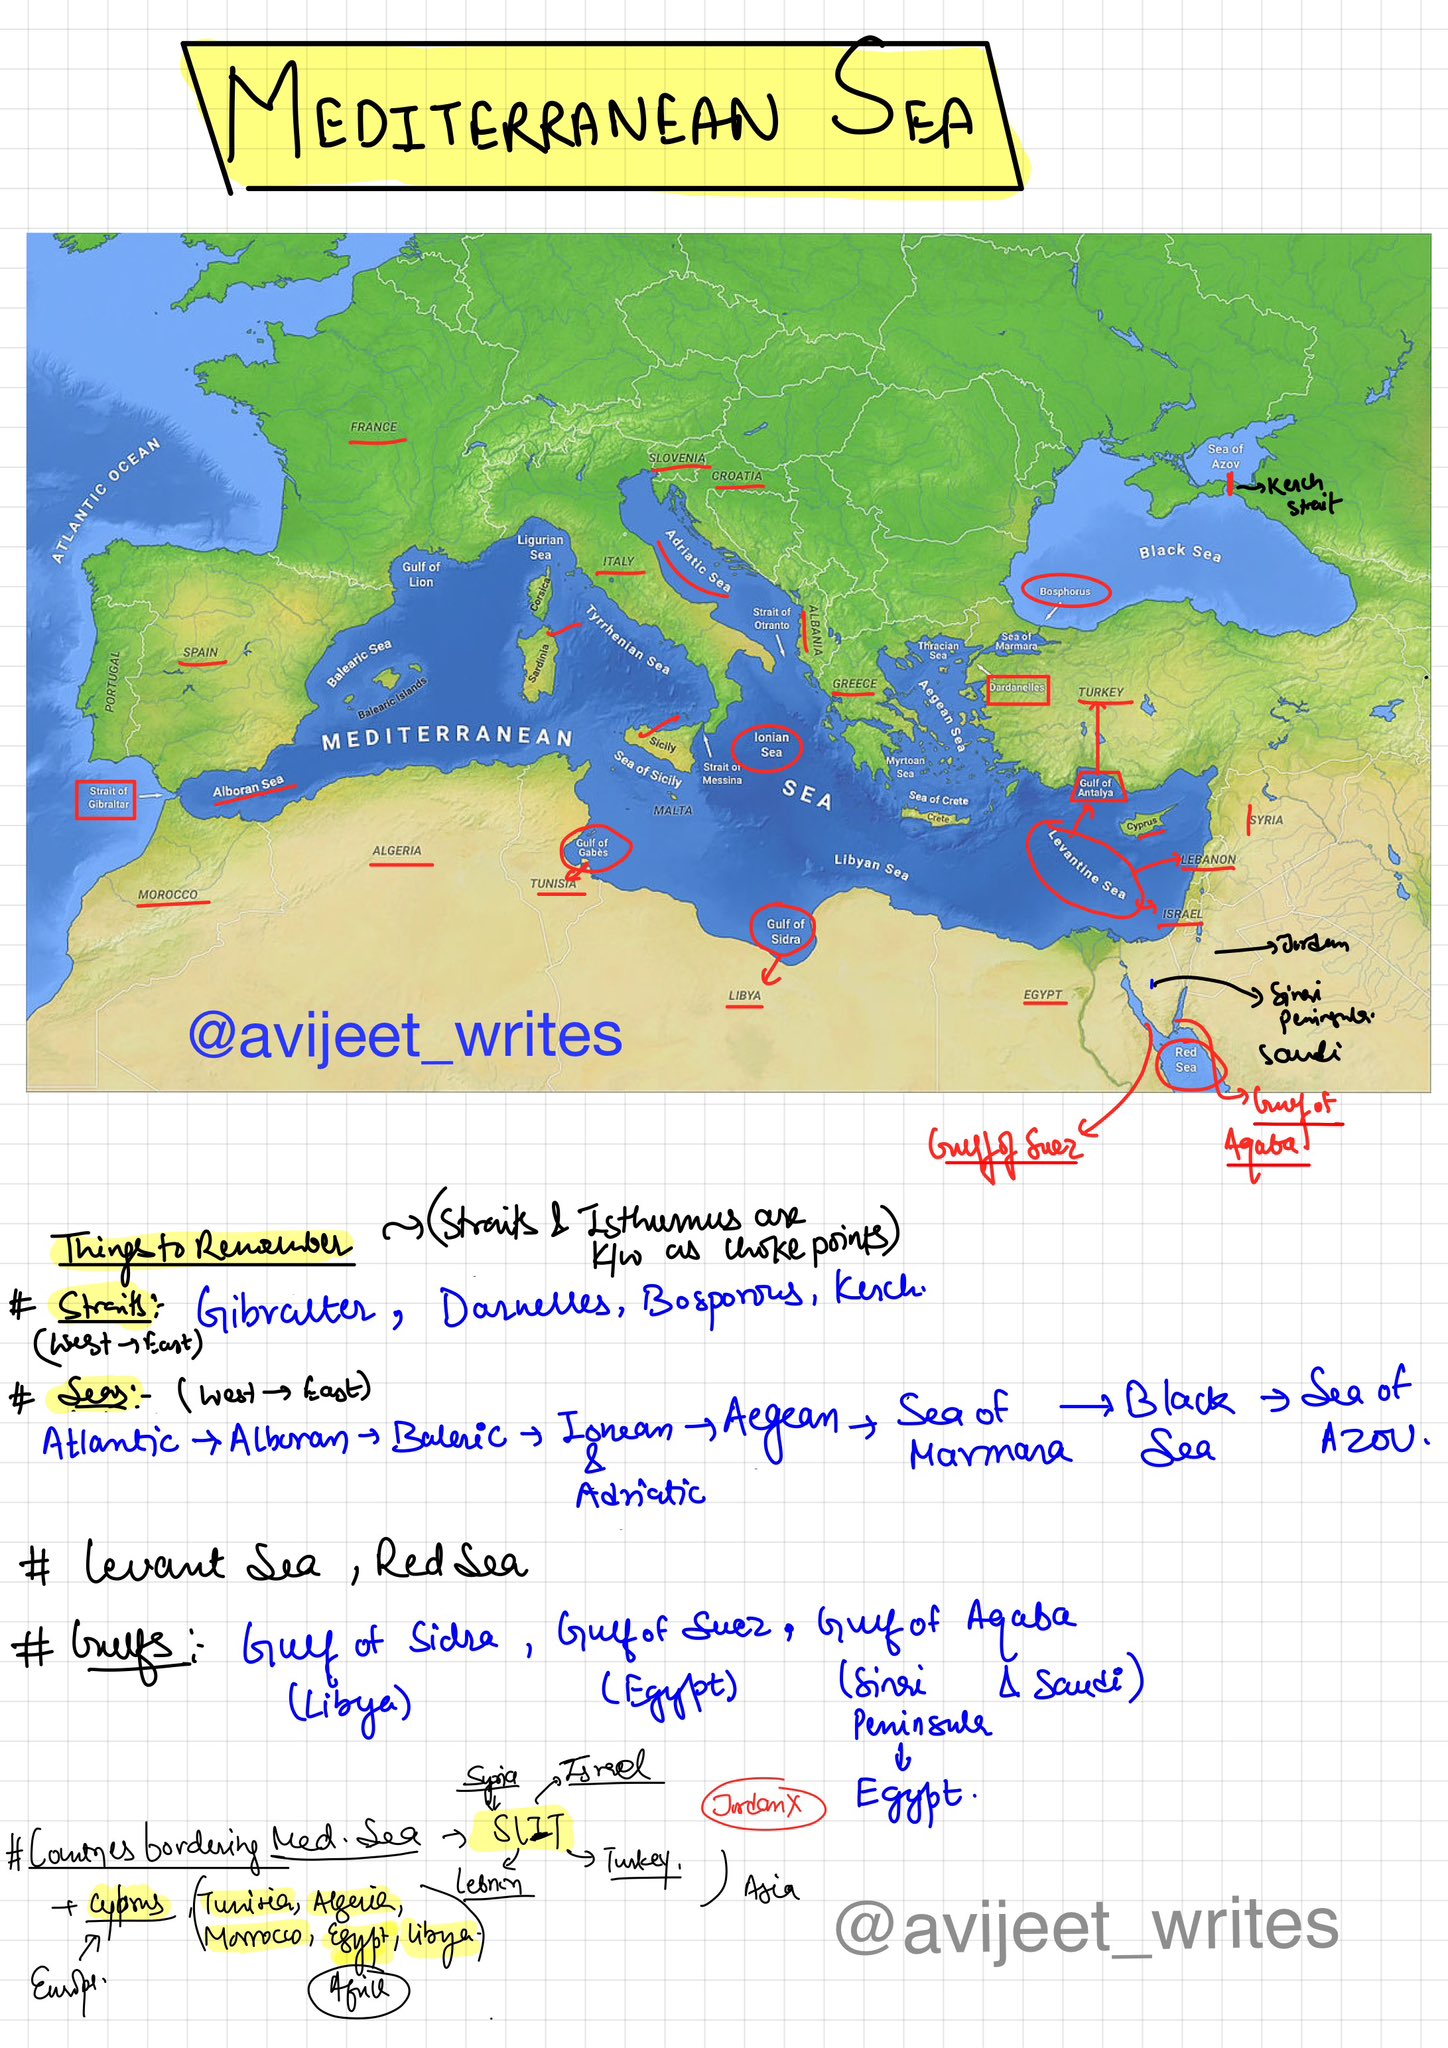 MEDITERRANEAN SEA
ATLANTIC OCEAN
FRANCE
SLOVENIA
CROATIA
Sea of
Azov
Kerch
strait
Black Sea
Bosphorus
Ligurian
Sea
Gulf of
Lion
ITALY
Adriatic Sea
Corsica
Strait of
Otranto
ALBANIA
Thracian
Sea
Sea of
Marmara
PORTUGAL
SPAIN
Balearic Sea
Balearic Islands
Sardinia
Tyrrhenian Sea
GREECE
Aegean Sea
Dardanelles
TURKEY
MEDITERRANEAN
SEA
Sicily
Ionian
Sea
Strait of
Messina
Sea of Sicily
Myrtoan
Sea
Gulf of
Antalya
Strait of
Gibraltar
Alboran Sea
MALTA
Sea of Crete
Crete
Cyprus
SYRIA
ALGERIA
Gulf of
Gabès
TUNISIA
Libyan Sea
Levantine Sea
LEBANON
MOROCCO
Gulf of
Sidra
ISRAEL
Jordan
LIBYA
EGYPT
Sinai
Peninsula.
Saudi
@avijeet_writes
Red
Sea
Gulf of Suez
Gulf of
Aqaba
Things to Remember (Straits & Isthumus are
K/w as choke points)
# Straits:- Gibralter, Darnelles, Bosporous, Kerch.
(West → East)
# Seas:- (West → East)
Atlantic → Alboran → Baleric → Ionean → Aegean → Sea of → Black → Sea of
& Marmara Sea AZOV.
Adriatic
# Levant Sea, Red Sea
# Gulfs: Gulf of Sidra, Gulf of Suez, Gulf of Aqaba
(Libya) (Egypt) (Sinai & Saudi)
Peninsula
↓
Egypt.
Syria Israel
Jordan X
# Countries bordering Med. Sea → SLIT
Lebnon Turkey. ) Asia
+ Cyprus, (Tunisia, Algeria,
Morrocco, Egypt, Libya)
Europe. Africa
@avijeet_writes